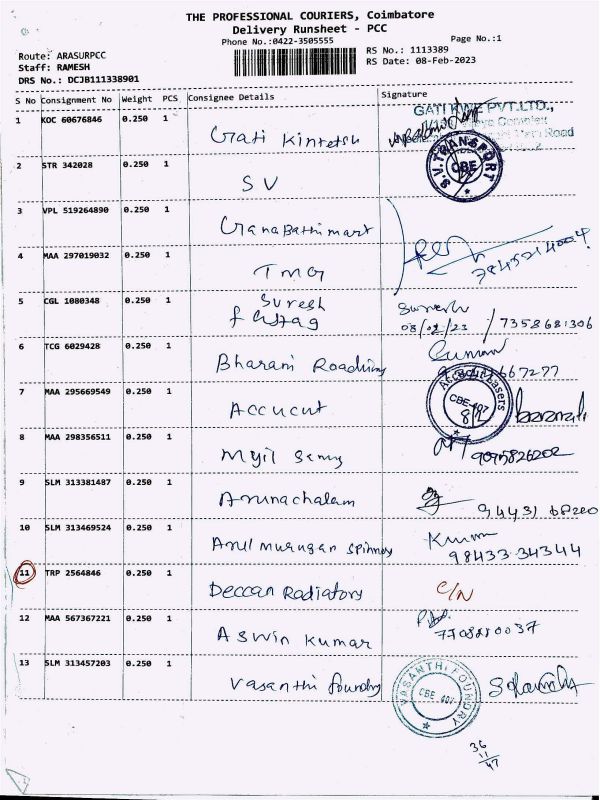 THE PROFESSIONAL COURIERS, Coimbatore
Delivery Runsheet - PCC
Phone No.:0422-3505555
Page No.:1
Route: ARASURPCC
Staff: RAMESH
DRS No.: DCJB111338901
RS No.: 1113389
RS Date: 08-Feb-2023
S No Consignment No Weight PCS Consignee Details Signature
1 KOC 60676846 0.250 1 Gati Kintetsu
GATI KWE PVT.LTD.,
Road
S.V.TRANSPORT
CBE
2 STR 342028 0.250 1 SV
3 VPL 519264890 0.250 1 Ganabathimart
4 MAA 297019032 0.250 1 TMG
5 CGL 1080348 0.250 1 Suresh
Suresh
08/02/23 / 7358681306
6 TCG 6029428 0.250 1 Bharani Roadlines
7 MAA 295669549 0.250 1 Accucut
Accucut Lasers
CBE-407
8/2
8 MAA 298356511 0.250 1 Myil Samy 9095826202
9 SLM 313381487 0.250 1 Arunachalam 94431 68200
10 SLM 313469524 0.250 1 Arul murugan spinners
98433 34344
11 TRP 2564846 0.250 1 Deccan Radiatory C/N
12 MAA 567367221 0.250 1 Aswin Kumar
7708880037
13 SLM 313457203 0.250 1 Vasanthi foundry
VASANTHI FOUNDRY
CBE 407
36
11
47